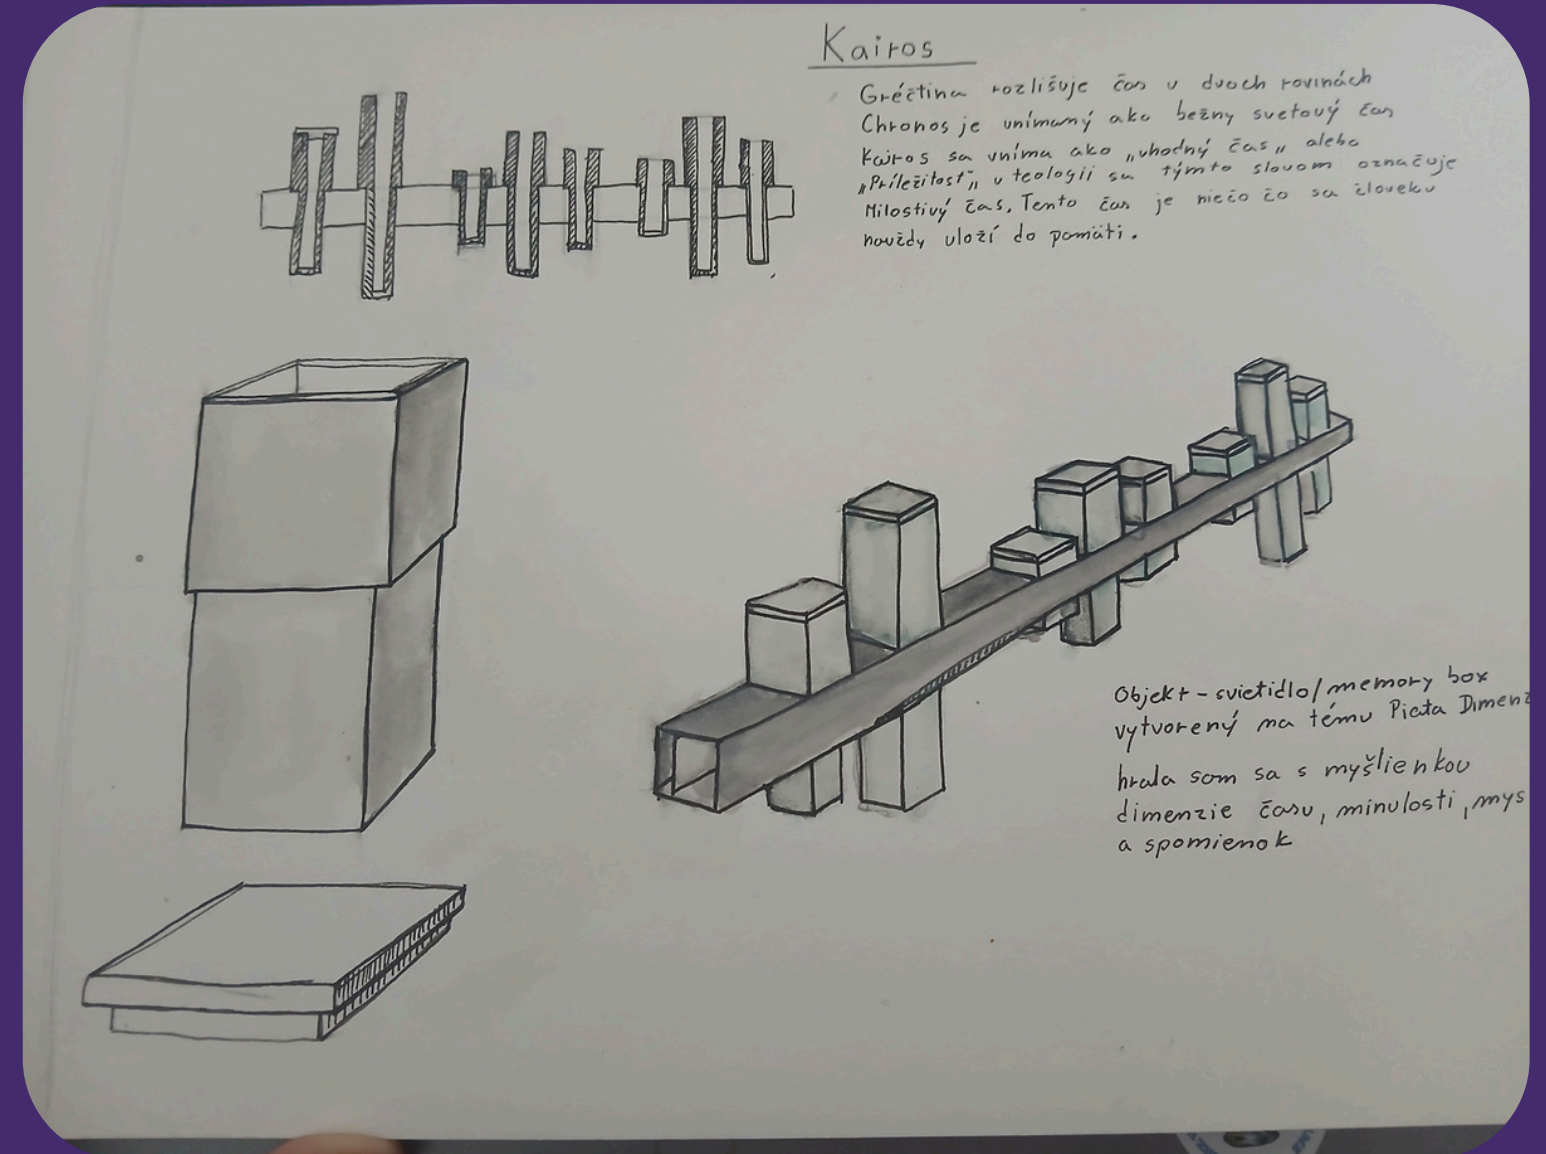 Kairos
Gréčtina rozlišuje čas v dvoch rovinách
Chronos je vnímaný ako bežny svetový čas
Kairos sa vníma ako „vhodný čas„ alebo
„Príležitosť„ v teologii sa týmto slovom označuje
Milostivý čas. Tento čas je niečo čo sa človeku
navždy uloží do pamäti.
Objekt - svietidlo/memory box
vytvorený na tému Piata Dimenz
hrala som sa s myšlienkou
dimenzie času, minulosti, mys
a spomienok